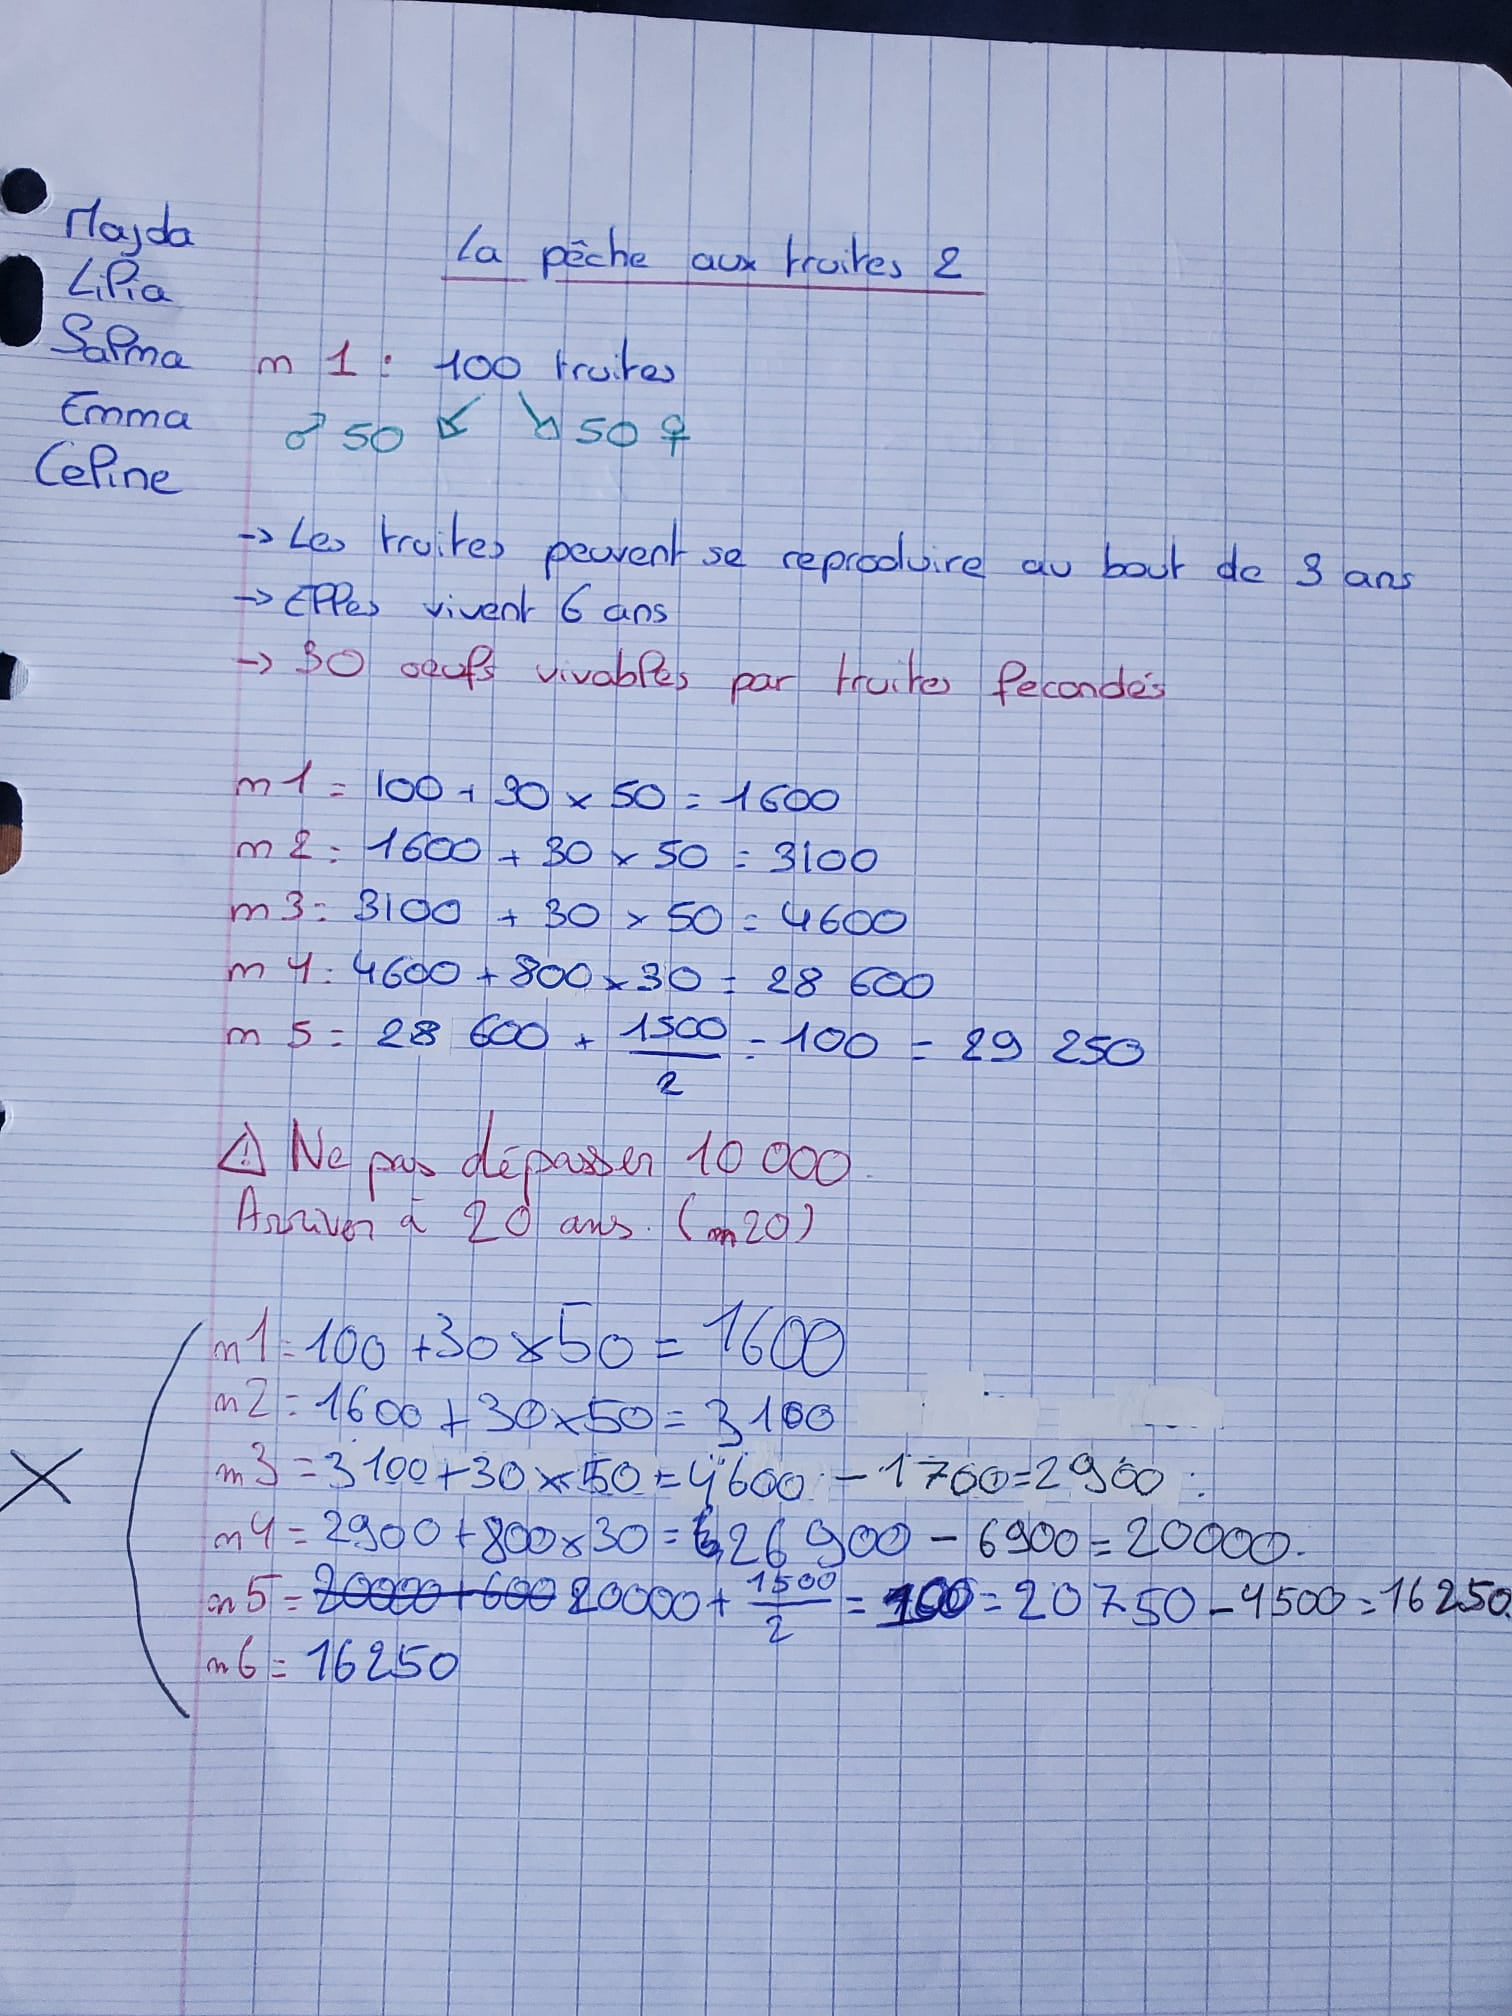 Majda
Lilia
Salma
Emma
Celine
La pêche aux truites 2
m 1 : 100 truites
♂ 50 ↙ ↘ 50 ♀
→ Les truites peuvent se reproduire au bout de 3 ans
→ Elles vivent 6 ans
→ 30 oeufs vivables par truites fecondés
m1 = 100 + 30 x 50 = 1600
m2 = 1600 + 30 x 50 = 3100
m3 = 3100 + 30 x 50 = 4600
m4 = 4600 + 800 x 30 = 28 600
m5 = 28 600 + 1500/2 - 100 = 29 250
⚠ Ne pas dépasser 10 000.
Arriver à 20 ans. (m20)
m1 = 100 + 30 x 50 = 1600
m2 = 1600 + 30 x 50 = 3100
X m3 = 3100 + 30 x 50 = 4600 - 1700 = 2900
m4 = 2900 + 800 x 30 = 26 900 - 6900 = 20000.
m5 = 20000 + 600 20000 + 1500/2 = 100 = 20750 - 4500 = 16250
m6 = 16250